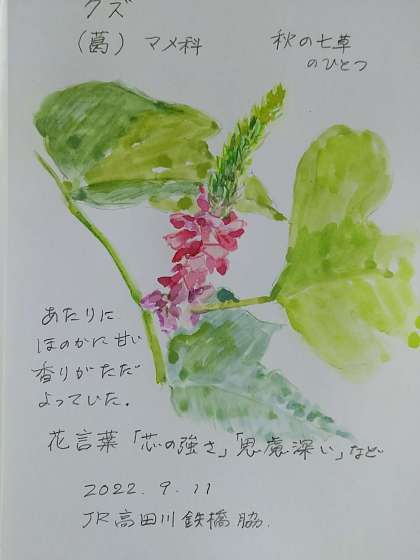 クズ
(葛) マメ科
秋の七草
のひとつ
あたりに
ほのかに甘い
香りがただ
よっていた.
花言葉「芯の強さ」「思慮深い」など
2022. 9. 11
JR高田川鉄橋脇.